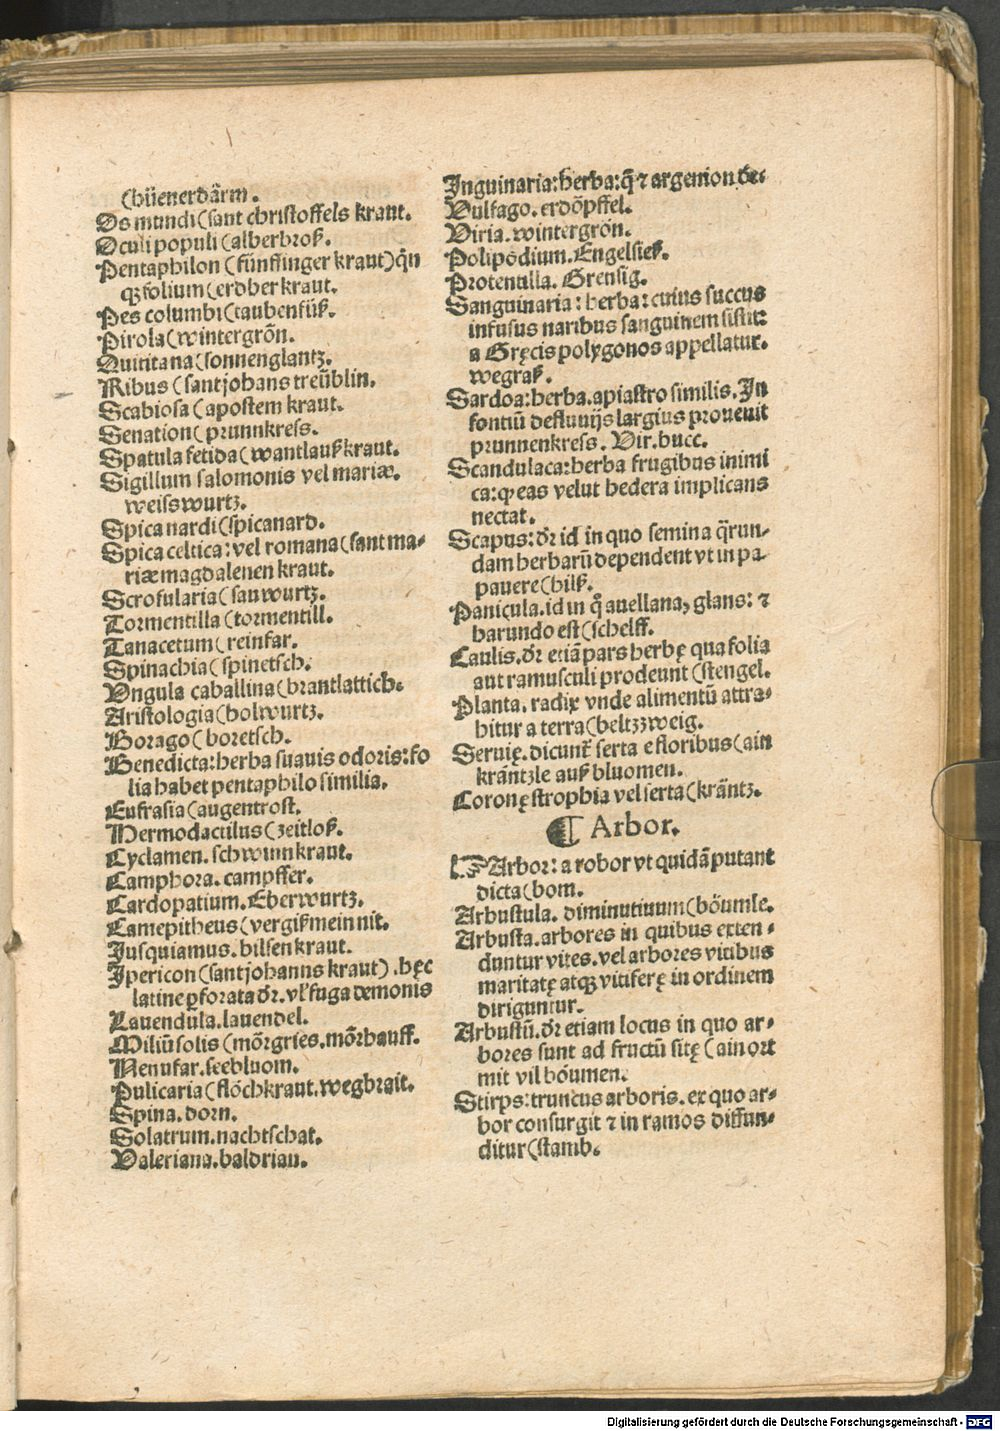 (hüenerdärm.
Os mundi (sant christoffels kraut.
Oculi populi (alberbroß.
Pentaphilon (fünffinger kraut) q̃n
qꝫ folium (erdber kraut.
Pes columbi (taubenfüß.
Pirola (wintergrön.
Quiritana (sonnenglantz.
Ribus (sant johans treüblin.
Scabiosa (apostem kraut.
Senation (prunnkress.
Spatula fetida (wantlauß kraut.
Sigillum salomonis vel mariæ.
weisswurtz.
Spica nardi (spicanard.
Spica celtica: vel romana (sant ma-
riæ magdalenen kraut.
Scrofularia (sauwurtz.
Tormentilla (tormentill.
Tanacetum (reinfar.
Spinachia (spinetsch.
Vngula caballina (brantlattich.
Aristologia (holwurtz.
Borago (boretsch.
Benedicta: herba suauis odoris: fo
lia habet pentaphilo similia.
Eufrasia (augentrost.
Hermodactilus (zeitloß.
Cyclamen. schwinnkraut.
Camphora. campffer.
Cardopatium. Eberwurtz.
Camepitheus (vergißmein nit.
Jusquiamus. bilsenkraut.
Ipericon (sant johanns kraut). hęc
latine ꝑforata dr̃. vl̃ fuga dæmonis
Lauendula. lauendel.
Miliũ solis (mörgries. mörhauff.
Nenufar. seebluom.
Pulicaria (flöchkraut. wegbrait.
Spina. dorn.
Solatrum. nachtschat.
Valeriana. baldrian.
Inguinaria: herba: q̃ ⁊ argemon dr̃:
Vulfago. erdöpffel.
Viria. wintergrön.
Polipodium. Engelsieß.
Protentilla. Grensig.
Sanguinaria: herba: cuius succus
infusus naribus sanguinem sistit:
a Gręcis polygonos appellatur.
wegraß.
Sardoa: herba. apiastro similis. In
fontiũ defluuijs largius prouenit
prunnenkress. Vir. bucc.
Scandulaca: herba frugibus inimi
ca: ꝙ eas velut hedera implicans
nectat.
Scapus: dr̃ id in quo semina q̃run-
dam herbarũ dependent vt in pa
pauere (hilß.
Panicula. id in q̃ auellana, glans: ⁊
harundo est (schelff.
Caulis. dr̃ etiã pars herbę qua folia
aut ramusculi prodeunt (stengel.
Planta. radix vnde alimentũ attra-
hitur a terra (beltzzweig.
Seruię. dicunt̃ serta e floribus (ain
kräntzle auß bluomen.
Coronę strophia vel serta (kräntz.
¶ Arbor.
☞ Arbor: a robor vt quidã putant
dicta (bom.
Arbustula. diminutiuum (böumle.
Arbusta. arbores in quibus exten-
duntur vites. vel arbores vitibus
maritatę atqꝫ vitiferę in ordinem
diriguntur.
Arbustũ. dr̃ etiam locus in quo ar-
bores sunt ad fructũ sitę (ain ort
mit vil böumen.
Stirps: truncus arboris. ex quo ar-
bor consurgit ⁊ in ramos diffun-
ditur (stamb.
Digitalisierung gefördert durch die Deutsche Forschungsgemeinschaft - DFG